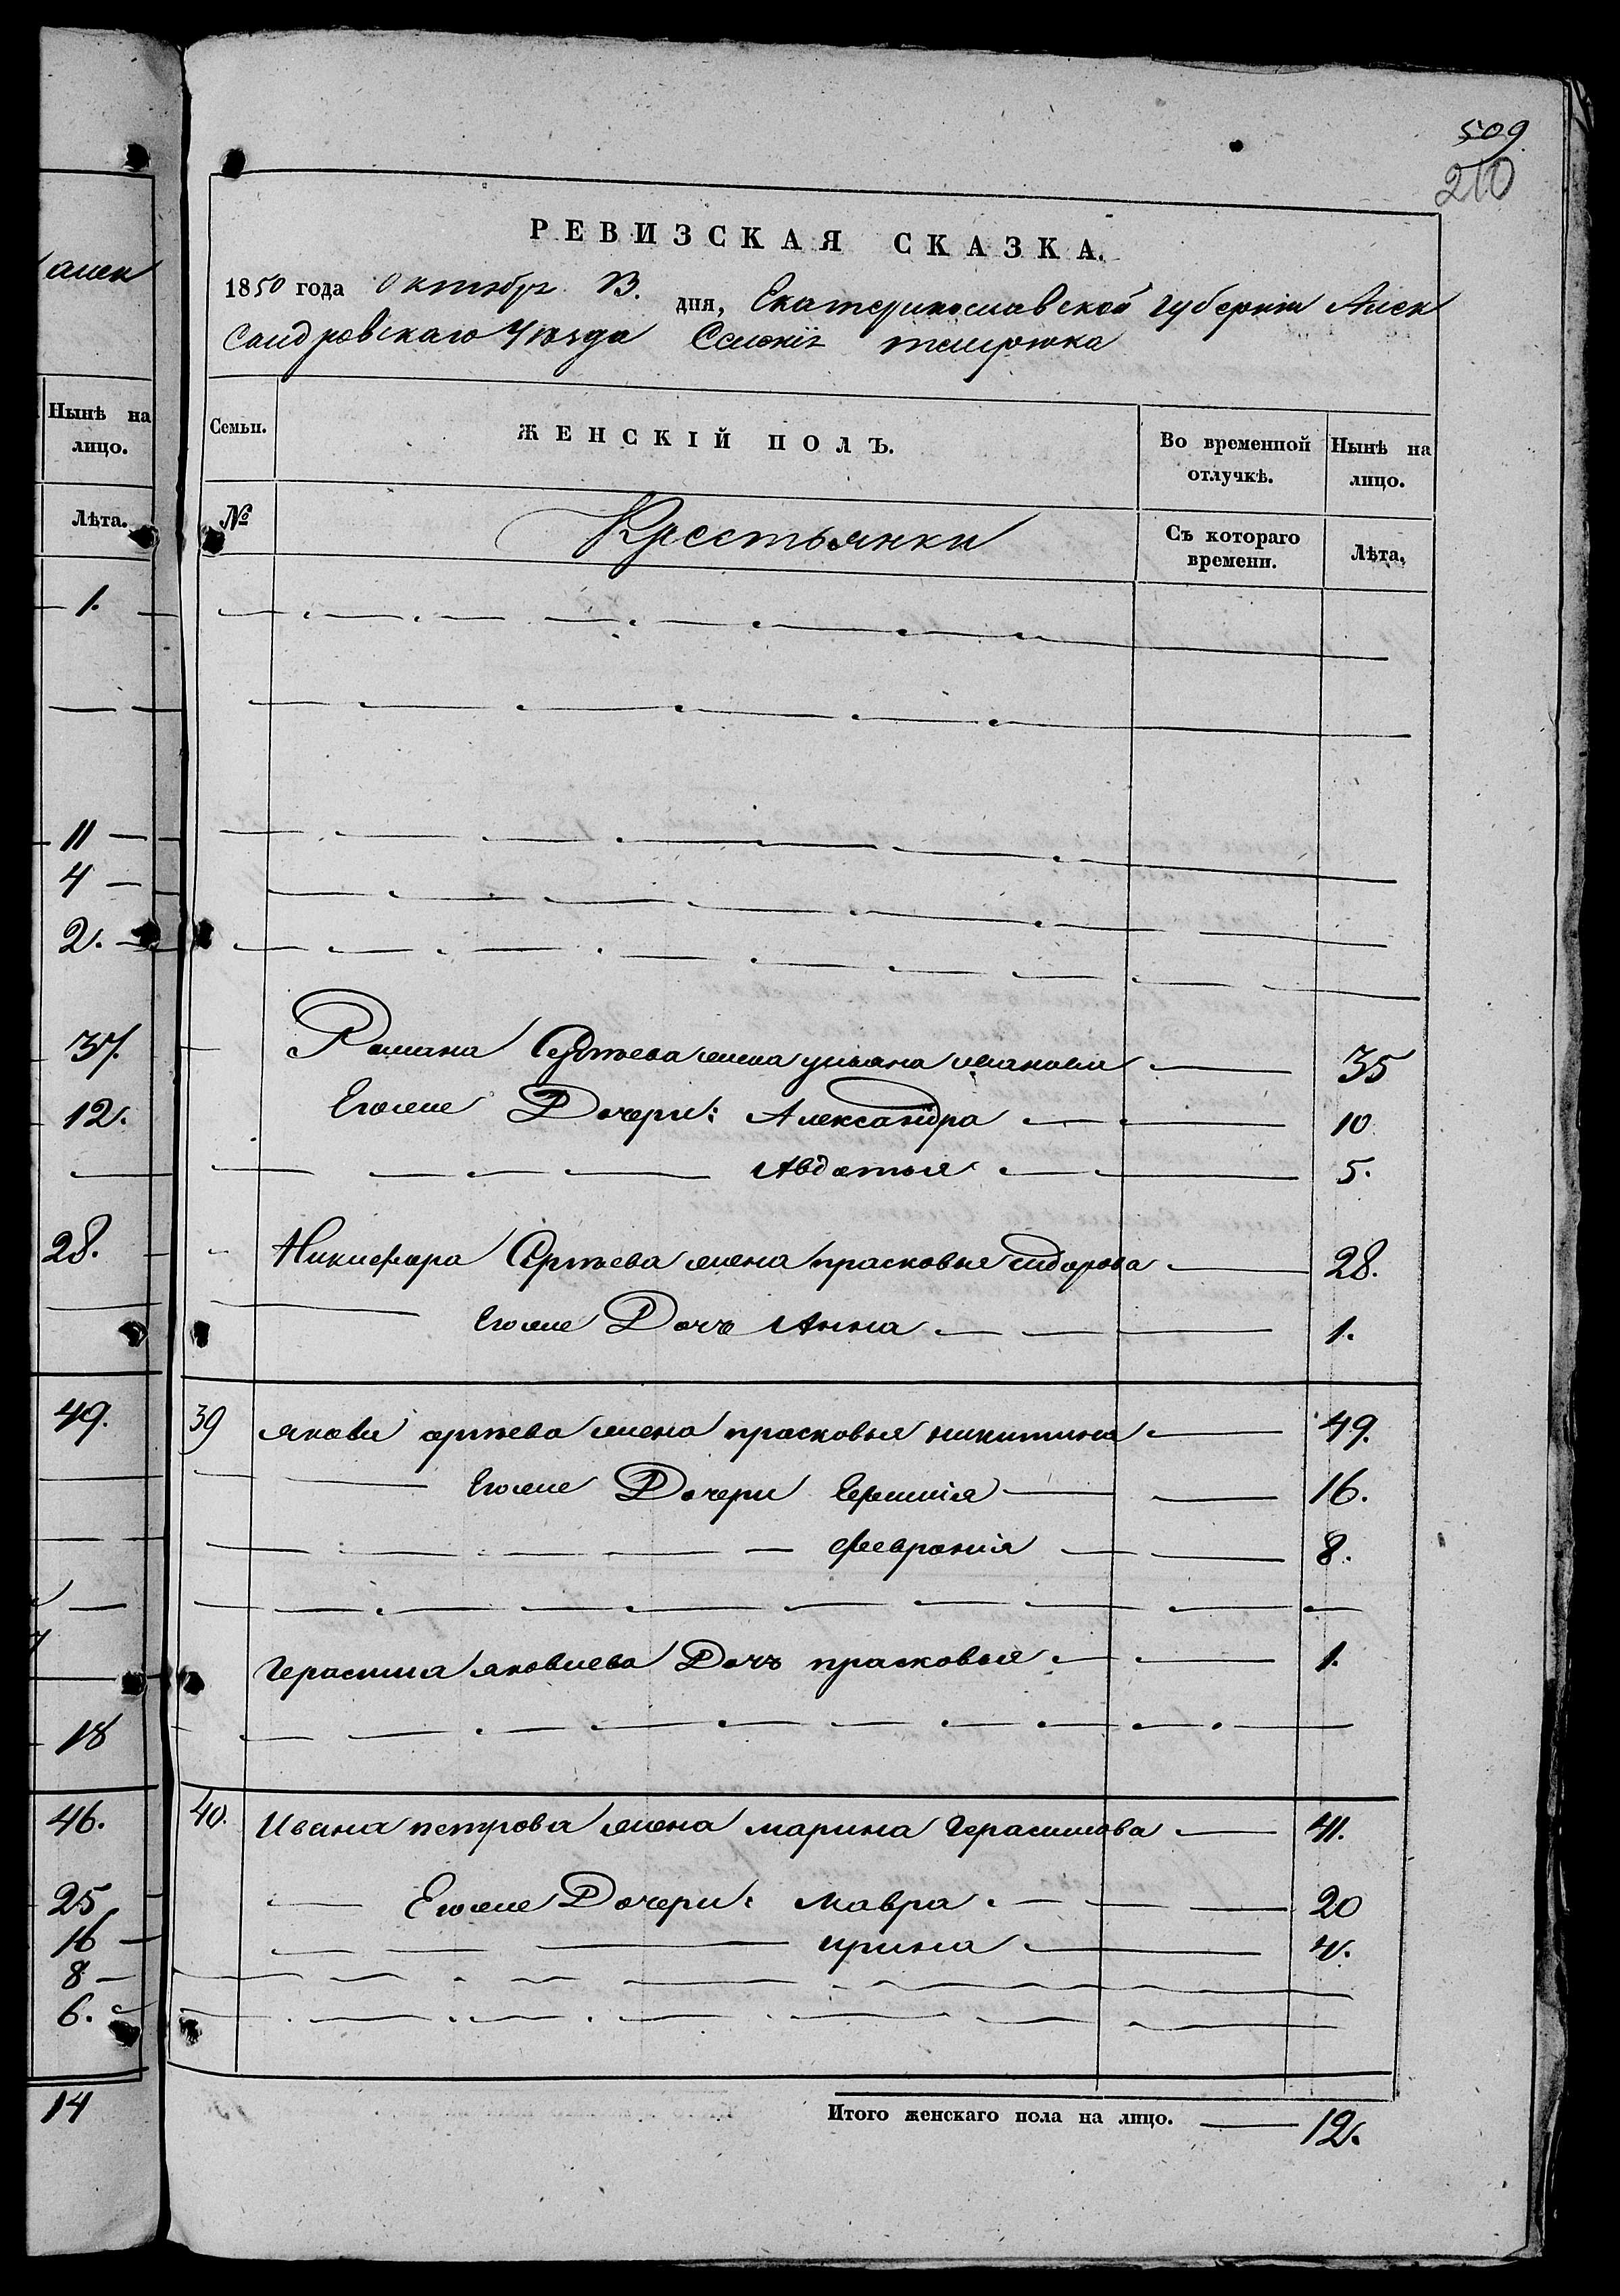 509
210
амен
Нынѣ на
лицо.
Лѣта.
1.
11
4
2.
37.
12.
28.
49.
18
46.
25
16
8
6.
14
РЕВИЗСКАЯ СКАЗКА.
1850 года Октябр 13. дня, Екатеринославской губернiи Алек
Сандровскаго Уѣзда Селенiя
Семьи. ЖЕНСКIЙ ПОЛЪ. Во временной отлучкѣ. Нынѣ на лицо.
№ Крестьянки Съ котораго времени. Лѣта.
Романа жена ульяна иванова 35
Егоже Дочери: Александра 10
Авдотья 5.
Никифора жена прасковья сидорова 28.
Егоже Дочь Анна 1.
39 якова жена прасковья никитина 49.
Егоже Дочери 16.
февронiя 8.
Герасима яковлева Дочь прасковья 1.
40. Ивана петрова жена марина Герасимова 41.
Егоже Дочери: мавра 20
ирина 4.
Итого женскаго пола на лицо. 12.